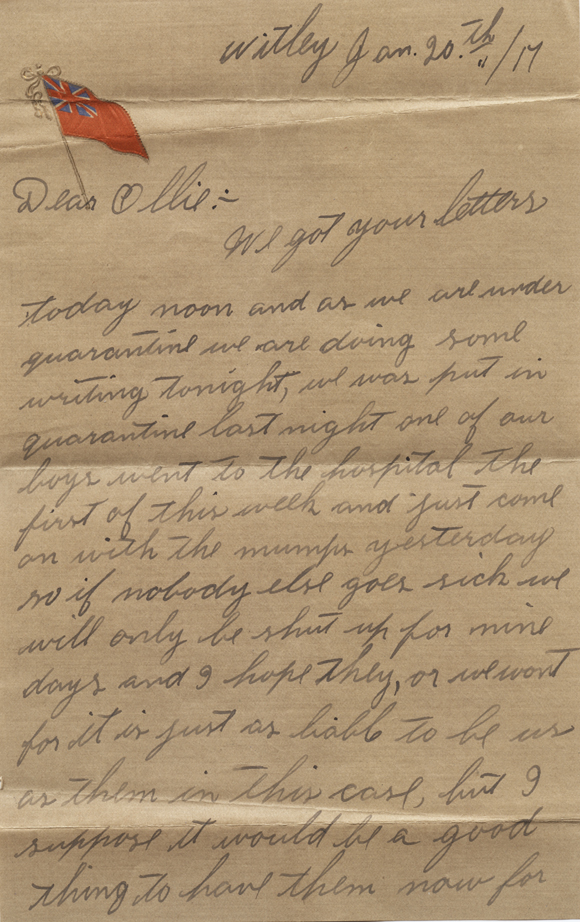 Witley Jan. 20.th "/17
Dear Ollie:-
We got your letters
today noon and as we are under
quarantine we are doing some
writing tonight, we was put in
quarantine last night one of our
boys went to the hospital the
first of this week and just come
on with the mumps yesterday
so if nobody else goes sick we
will only be shut up for nine
days and I hope they, or we wont
for it is just as liabl to be us
as them in this case, but I
suppose it would be a good
thing to have them now for